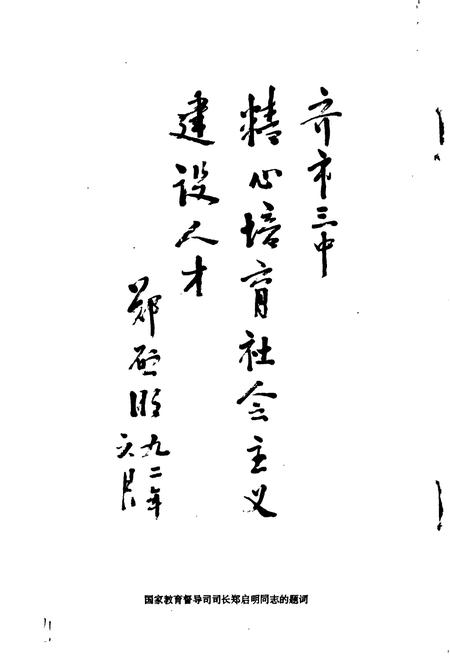 齐市三中
精心培育社会主义
建设人才
郑启明
九二年
六月
国家教育督导司司长郑启明同志的题词